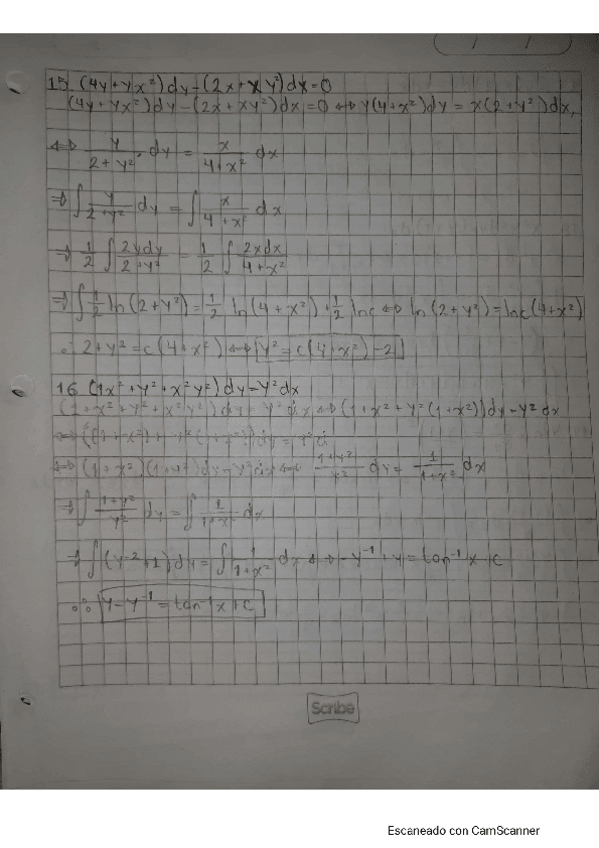 15. (4y+yx²)dy-(2x+xy²)dx=0
(4y+yx²)dy-(2x+xy²)dx=0 ⇔ y(4+x²)dy = x(2+y²)dx,
⇔ y/(2+y²) dy = x/(4+x²) dx
⇒ ∫ y/(2+y²) dy = ∫ x/(4+x²) dx
⇒ 1/2 ∫ 2ydy/(2+y²) = 1/2 ∫ 2xdx/(4+x²)
⇒ ∫ 1/2 ln(2+y²) = 1/2 ln(4+x²)+1/2 lnc ⇔ ln(2+y²)=lnc(4+x²)
∴ 2+y²=c(4+x²) ⇔ y²=c(4+x²)-2
16. (1x²+y²+x²y²)dy=y²dx
(1+x²+y²+x²y²)dy=y²dx ⇔ (1+x²+y²(1+x²))dy=y²dx
⇔ (1+x²)(1+y²)dy=y²dx ⇔ (1+y²)/y² dy= 1/(1+x²) dx
⇒ ∫ (1+y²)/y² dy = ∫ 1/(1+x²) dx
⇒ ∫(y⁻²+1)dy=∫ 1/(1+x²) dx ⇔ -y⁻¹+y=tan⁻¹x+c
∴ y-y⁻¹=tan⁻¹x+c
Scribe
Escaneado con CamScanner